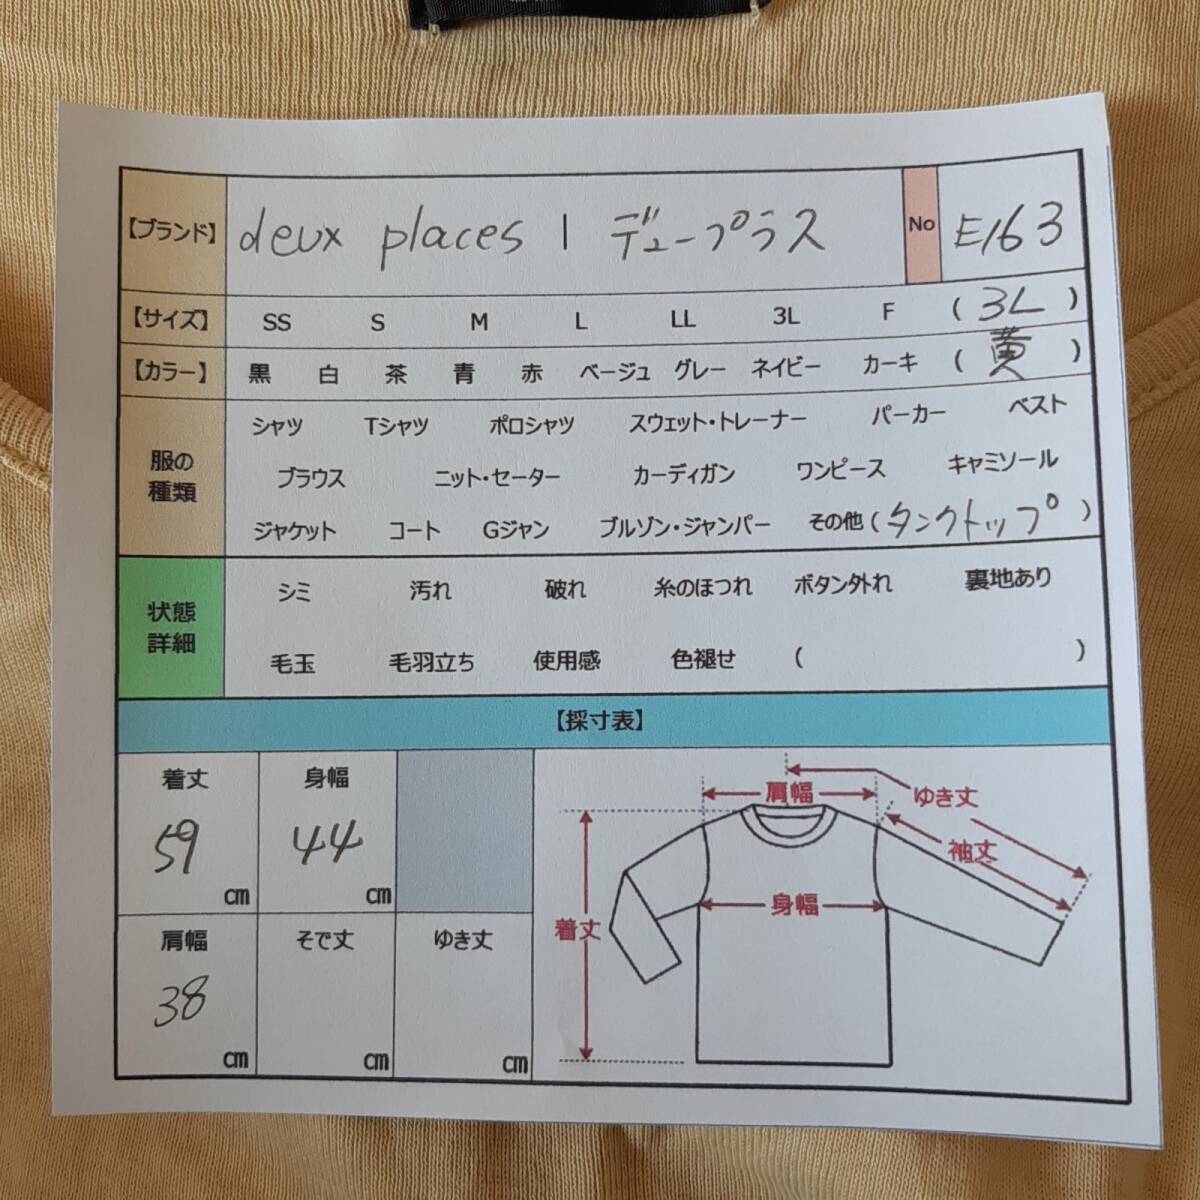 【ブランド】 deux places | デュープラス No E163
【サイズ】 SS S M L LL 3L F ( 3L )
【カラー】 黒 白 茶 青 赤 ベージュ グレー ネイビー カーキ ( 黄 )
服の
種類
シャツ Tシャツ ポロシャツ スウェット・トレーナー パーカー ベスト
ブラウス ニット・セーター カーディガン ワンピース キャミソール
ジャケット コート Gジャン ブルゾン・ジャンパー その他 ( タンクトップ )
状態
詳細
シミ 汚れ 破れ 糸のほつれ ボタン外れ 裏地あり
毛玉 毛羽立ち 使用感 色褪せ ( )
【採寸表】
着丈 身幅
59 44
cm cm
肩幅 そで丈 ゆき丈
38
cm cm cm
肩幅 ゆき丈
袖丈
身幅
着丈